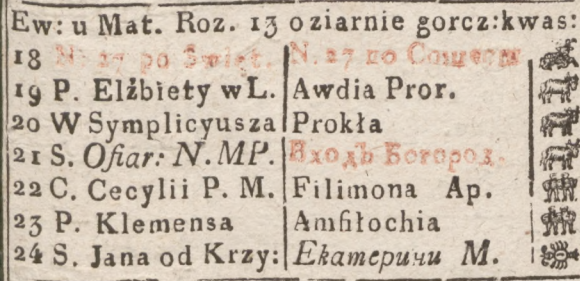 Ew: u Mat. Roz. 13 o ziarnie gorcz: kwas:
18 N. 27 po Swięt. N. 27 по Сошеств
19 P. Elżbiety w L. Awdia Pror.
20 W Symplicyusza Prokła
21 S. Ofiar: N. MP. Входъ Богород.
22 C. Cecylii P. M. Filimona Ap.
23 P. Klemensa Amfiłochia
24 S. Jana od Krzy: Екатерини М.